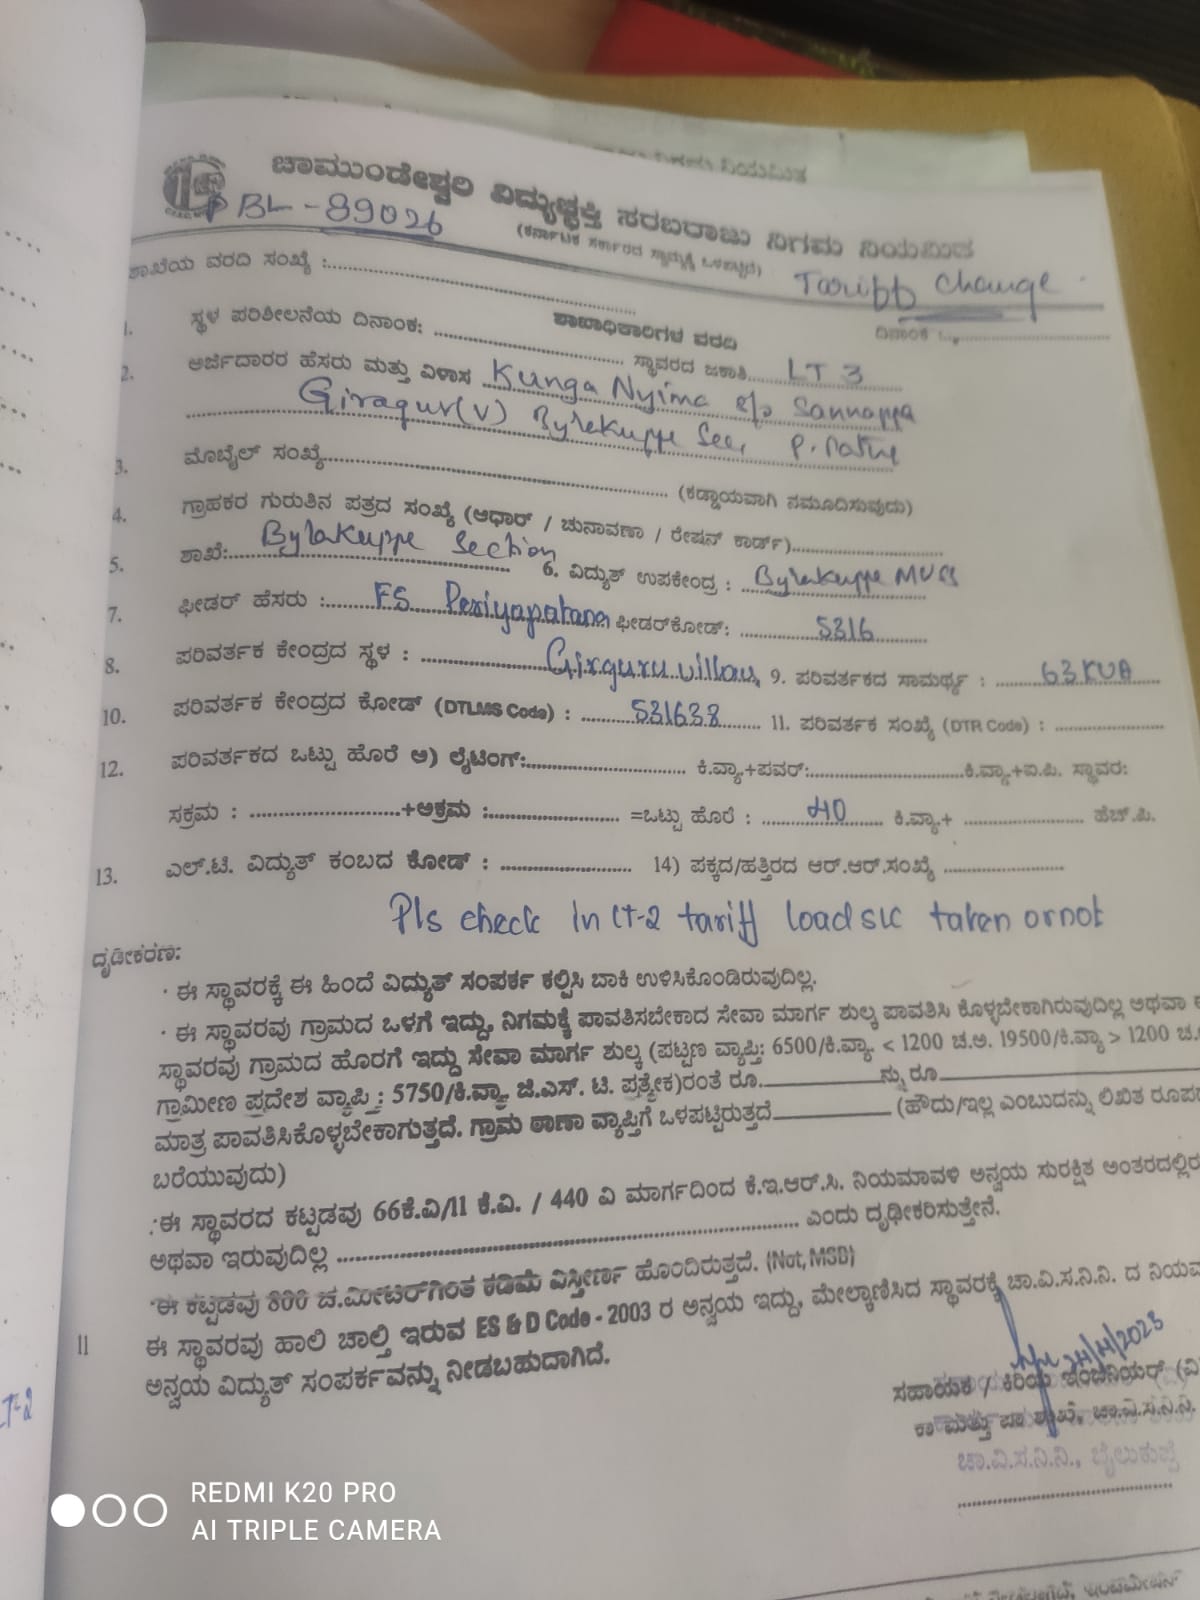 ಚಾಮುಂಡೇಶ್ವರಿ ವಿದ್ಯುಚ್ಛಕ್ತಿ ಸರಬರಾಜು ನಿಗಮ ನಿಯಮಿತ
PBL-89026
(ಕರ್ನಾಟಕ ಸರ್ಕಾರದ ಸ್ವಾಮ್ಯಕ್ಕೆ ಒಳಪಟ್ಟಿದೆ)
Tariff change
ಶಾಖೆಯ ವರದಿ ಸಂಖ್ಯೆ : ದಿನಾಂಕ :
ಶಾಖಾಧಿಕಾರಿಗಳ ವರದಿ
1. ಸ್ಥಳ ಪರಿಶೀಲನೆಯ ದಿನಾಂಕ: ಸ್ಥಾವರದ ಜಕಾತಿ LT 3
2. ಅರ್ಜಿದಾರರ ಹೆಸರು ಮತ್ತು ವಿಳಾಸ Kunga Nyima Sannappa
Giragur(V) Bylekuppe Sec,
3. ಮೊಬೈಲ್ ಸಂಖ್ಯೆ (ಕಡ್ಡಾಯವಾಗಿ ನಮೂದಿಸುವುದು)
4. ಗ್ರಾಹಕರ ಗುರುತಿನ ಪತ್ರದ ಸಂಖ್ಯೆ (ಆಧಾರ್ / ಚುನಾವಣಾ / ರೇಷನ್ ಕಾರ್ಡ್)
5. ಶಾಖೆ: Bylakuppe Section 6. ವಿದ್ಯುತ್ ಉಪಕೇಂದ್ರ : Bylakuppe MUSS
7. ಫೀಡರ್ ಹೆಸರು : F5 Periyapatana ಫೀಡರ್‌ಕೋಡ್: 5316
8. ಪರಿವರ್ತಕ ಕೇಂದ್ರದ ಸ್ಥಳ : Girguru village 9. ಪರಿವರ್ತಕದ ಸಾಮರ್ಥ್ಯ : 63 KVA
10. ಪರಿವರ್ತಕ ಕೇಂದ್ರದ ಕೋಡ್ (DTLMS Code) : 531638 11. ಪರಿವರ್ತಕ ಸಂಖ್ಯೆ (DTR Code) :
12. ಪರಿವರ್ತಕದ ಒಟ್ಟು ಹೊರೆ ಅ) ಲೈಟಿಂಗ್: ಕಿ.ವ್ಯಾ.+ಪವರ್: ಕಿ.ವ್ಯಾ.+ಐ.ಪಿ. ಸ್ಥಾವರ:
ಸಕ್ರಮ : +ಅಕ್ರಮ : =ಒಟ್ಟು ಹೊರೆ : 40 ಕಿ.ವ್ಯಾ.+ ಹೆಚ್.ಪಿ.
13. ಎಲ್.ಟಿ. ವಿದ್ಯುತ್ ಕಂಬದ ಕೋಡ್ : 14) ಪಕ್ಕದ/ಹತ್ತಿರದ ಆರ್.ಆರ್.ಸಂಖ್ಯೆ
Pls check in LT-2 tariff load SLC taken or not
ದೃಢೀಕರಣ:
· ಈ ಸ್ಥಾವರಕ್ಕೆ ಈ ಹಿಂದೆ ವಿದ್ಯುತ್ ಸಂಪರ್ಕ ಕಲ್ಪಿಸಿ ಬಾಕಿ ಉಳಿಸಿಕೊಂಡಿರುವುದಿಲ್ಲ.
· ಈ ಸ್ಥಾವರವು ಗ್ರಾಮದ ಒಳಗೆ ಇದ್ದು, ನಿಗಮಕ್ಕೆ ಪಾವತಿಸಬೇಕಾದ ಸೇವಾ ಮಾರ್ಗ ಶುಲ್ಕ ಪಾವತಿಸಿ ಕೊಳ್ಳಬೇಕಾಗಿರುವುದಿಲ್ಲ ಅಥವಾ
ಸ್ಥಾವರವು ಗ್ರಾಮದ ಹೊರಗೆ ಇದ್ದು ಸೇವಾ ಮಾರ್ಗ ಶುಲ್ಕ (ಪಟ್ಟಣ ವ್ಯಾಪ್ತಿ: 6500/ಕಿ.ವ್ಯಾ. < 1200 ಚ.ಅ. 19500/ಕಿ.ವ್ಯಾ > 1200 ಚ.
ಗ್ರಾಮೀಣ ಪ್ರದೇಶ ವ್ಯಾಪ್ತಿ : 5750/ಕಿ.ವ್ಯಾ. ಜಿ.ಎಸ್. ಟಿ. ಪ್ರತ್ಯೇಕ)ರಂತೆ ರೂ. ನ್ನು ರೂ
ಮಾತ್ರ ಪಾವತಿಸಿಕೊಳ್ಳಬೇಕಾಗುತ್ತದೆ. ಗ್ರಾಮ ಠಾಣಾ ವ್ಯಾಪ್ತಿಗೆ ಒಳಪಟ್ಟಿರುತ್ತದೆ (ಹೌದು/ಇಲ್ಲ ಎಂಬುದನ್ನು ಲಿಖಿತ
ಬರೆಯುವುದು)
: ಈ ಸ್ಥಾವರದ ಕಟ್ಟಡವು 66ಕೆ.ವಿ/11 ಕೆ.ವಿ. / 440 ವಿ ಮಾರ್ಗದಿಂದ ಕೆ.ಇ.ಆರ್.ಸಿ. ನಿಯಮಾವಳಿ ಅನ್ವಯ ಸುರಕ್ಷಿತ
ಅಥವಾ ಇರುವುದಿಲ್ಲ ಎಂದು ದೃಢೀಕರಿಸುತ್ತೇನೆ.
· ಈ ಕಟ್ಟಡವು 800 ಚ.ಮೀಟರ್‌ಗಿಂತ ಕಡಿಮೆ ವಿಸ್ತೀರ್ಣ ಹೊಂದಿರುತ್ತದೆ. (Not, MSB)
II ಈ ಸ್ಥಾವರವು ಹಾಲಿ ಚಾಲ್ತಿ ಇರುವ ES & D Code - 2003 ರ ಅನ್ವಯ ಇದ್ದು, ಮೇಲ್ಕಾಣಿಸಿದ ಸ್ಥಾವರಕ್ಕೆ ಚಾ.ವಿ.ಸ.ನಿ.ನಿ. ದ
ಅನ್ವಯ ವಿದ್ಯುತ್ ಸಂಪರ್ಕವನ್ನು ನೀಡಬಹುದಾಗಿದೆ.
24/4/2023
ಸಹಾಯಕ / ಕಿರಿಯ ಇಂಜಿನಿಯರ್ (ವಿ)
ಕಾ ಮತ್ತು ಪಾ ಶಾಖೆ, ಚಾ.ವಿ.ಸ.ನಿ.ನಿ.
ಚಾ.ವಿ.ಸ.ನಿ.ನಿ., ಬೈಲುಕುಪ್ಪೆ
LT-2
REDMI K20 PRO
AI TRIPLE CAMERA